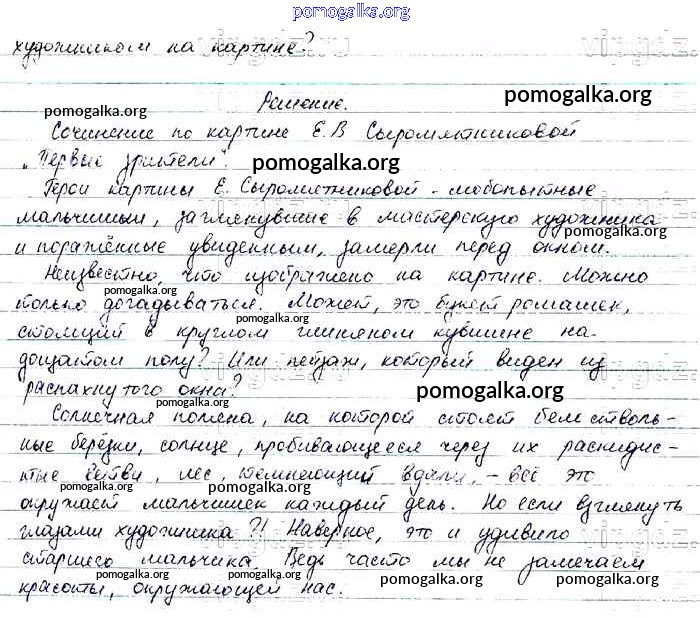 pomogalka.org
художником на картине?
pomogalka.org
pomogalka.org
Решение.
Сочинение по картине Е.В Сыромятниковой
„Первые зрители".
pomogalka.org
Герои картины Е. Сыромятниковой - любопытные
мальчишки, заглянувшие в мастерскую художника
pomogalka.org
и поражённые увиденным, замерли перед окном.
Неизвестно, что изображено на картине. Можно
pomogalka.org
только догадываться. Может, это букет ромашек,
pomogalka.org
стоящий в круглом глиняном кувшине на
дощатом полу? Или пейзаж, который виден из
распахнутого окна?
pomogalka.org
pomogalka.org
Солнечная поляна, на которой стоят белостволь-
ные берёзки, солнце, пробивающееся через их раскидис-
тые ветви, лес, темнеющий вдали, - всё это
pomogalka.org pomogalka.org
окружает мальчишек каждый день. Но если взглянуть
глазами художника?! Наверное, это и удивило
старшего мальчика. Ведь часто мы не замечаем
pomogalka.org pomogalka.org pomogalka.org pomogalka.org
красоты, окружающей нас.